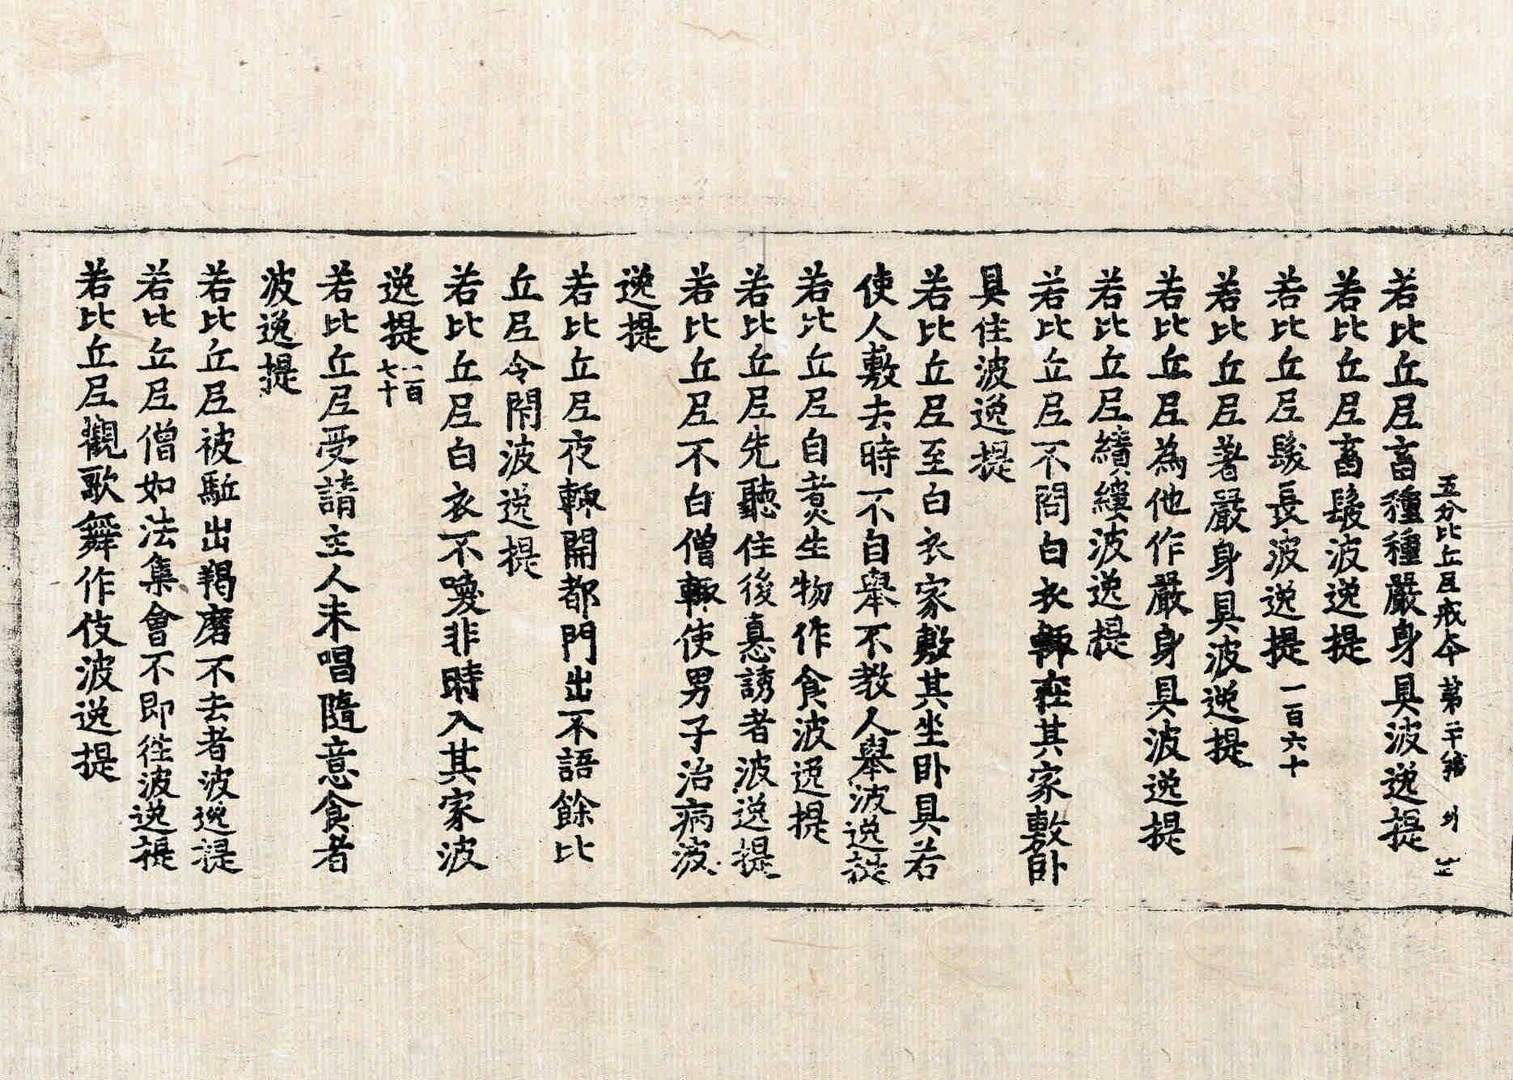 五分比丘尼戒本 第二十
若比丘尼畜種種嚴身具波逸提
若比丘尼畜髲波逸提
若比丘尼髲長波逸提 一百六十
若比丘尼著嚴身具波逸提
若比丘尼為他作嚴身具波逸提
若比丘尼績縷波逸提
若比丘尼不問白衣輒在其家敷卧
具住波逸提
若比丘尼至白衣家敷其坐卧具若
使人敷去時不自舉不教人舉波逸提
若比丘尼自煮生物作食波逸提
若比丘尼先聽住後恚謗者波逸提
若比丘尼不白僧輒使男子治病波
逸提
若比丘尼夜輒開都門出不語餘比
丘尼令閇波逸提
若比丘尼白衣不喚非時入其家波
逸提 一百七十
若比丘尼受請主人未唱隨意食者
波逸提
若比丘尼被駈出羯磨不去者波逸提
若比丘尼僧如法集會不即往波逸提
若比丘尼觀歌舞作伎波逸提